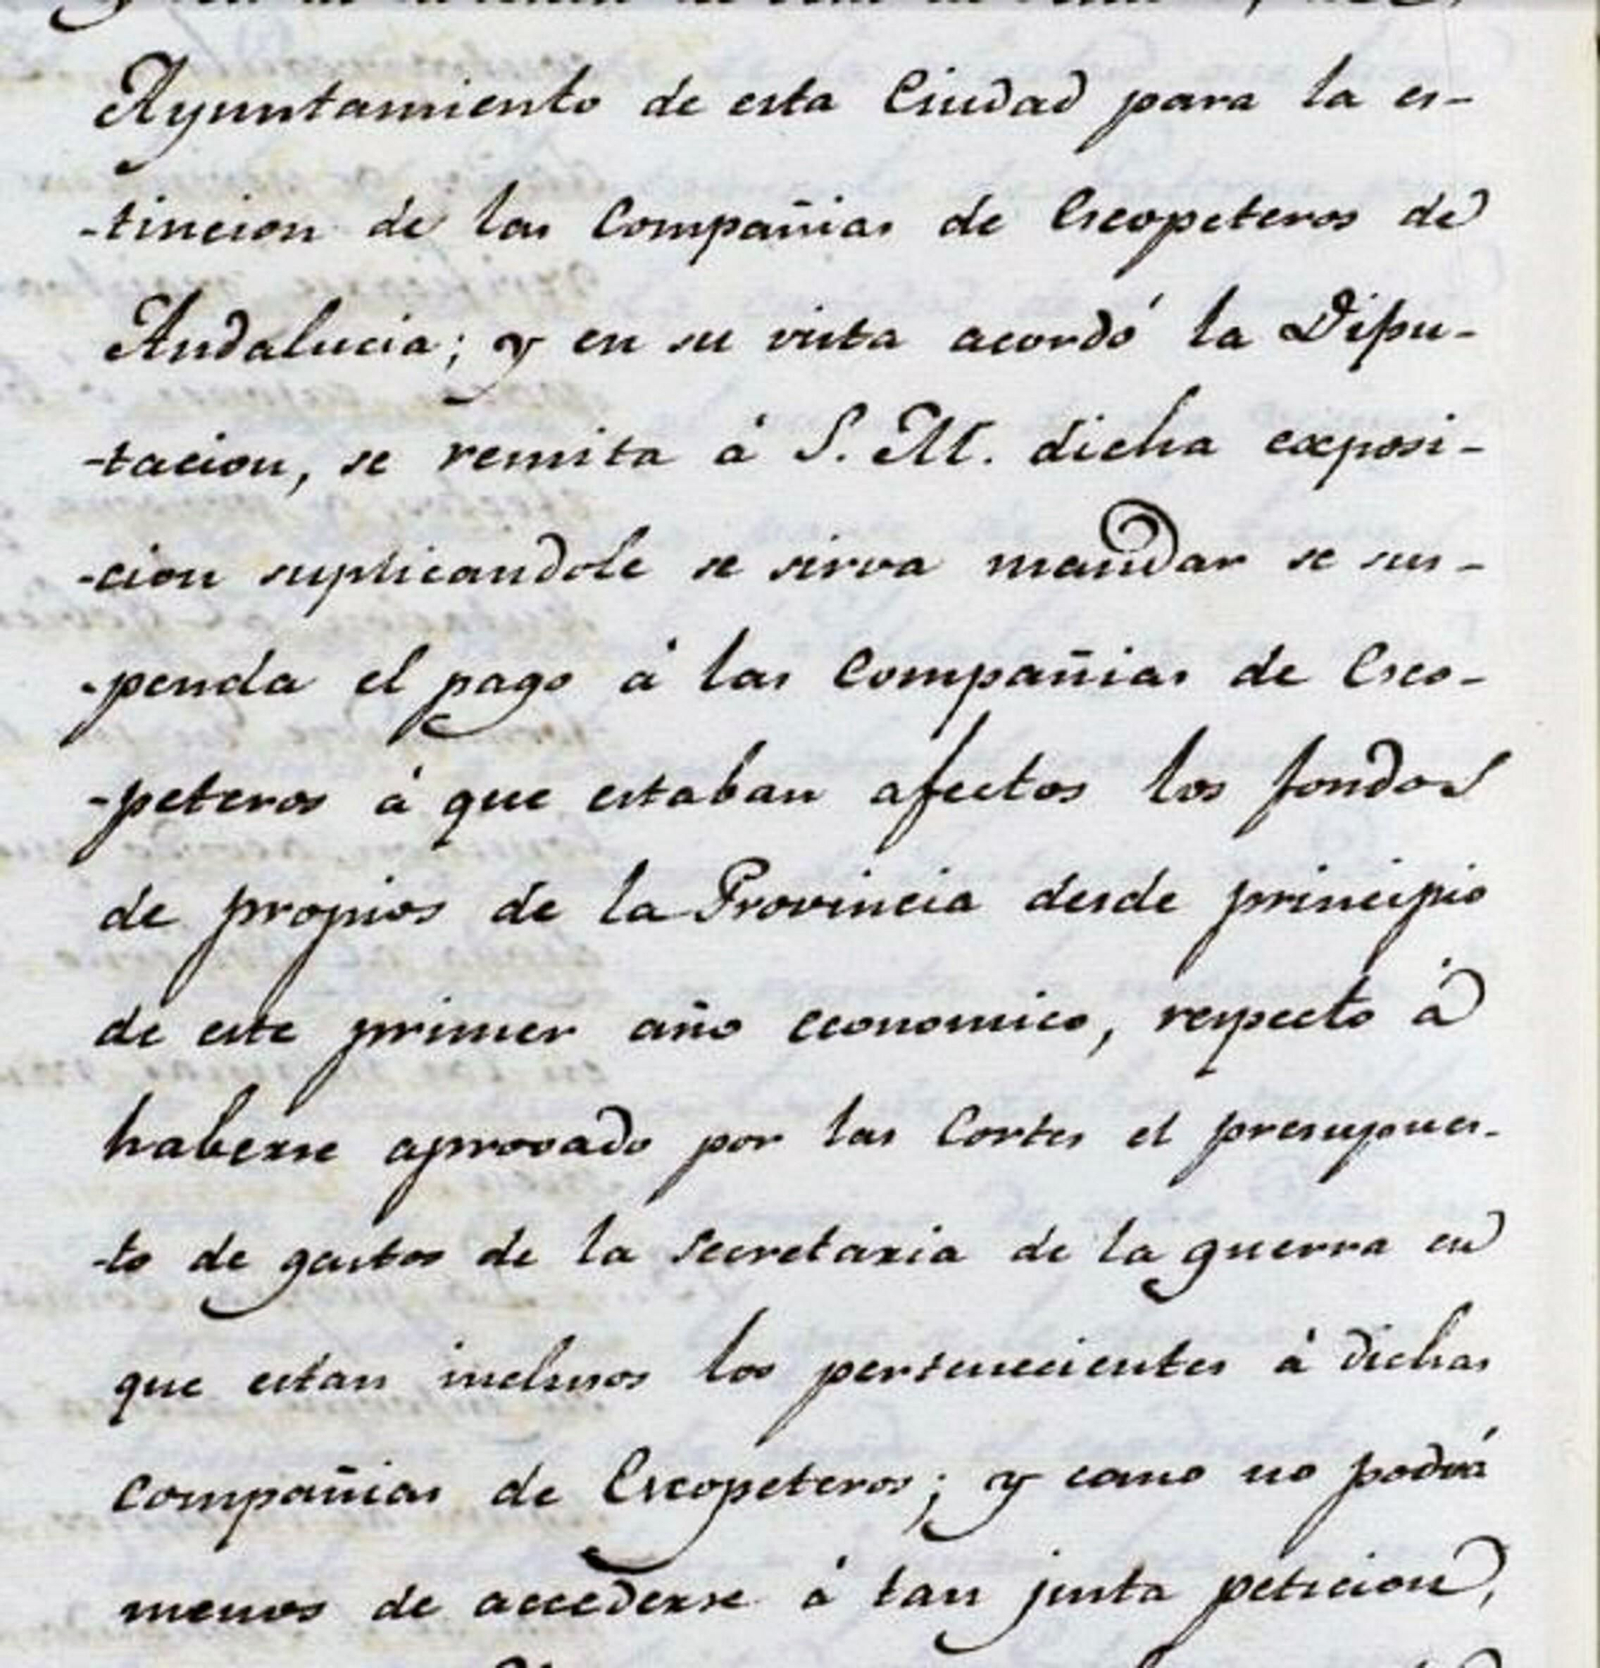 Ayuntamiento de esta Ciudad para la es-
-tincion de las Compañias de Escopeteros de
Andalucia; y en su vista acordó la Dipu-
-tacion, se remita á S. M. dicha exposi-
-cion suplicandole se sirva mandar se sus-
-penda el pago á las Compañias de Esco-
-peteros á que estaban afectos los fondos
de propios de la Provincia desde principio
de este primer año economico, respecto á
haberse aprovado por las Cortes el presupues-
-to de gastos de la Secretaria de la guerra en
que estan inclusos los pertenecientes á dichas
compañias de Escopeteros; y como no podrá
menos de accederse á tan justa peticion,